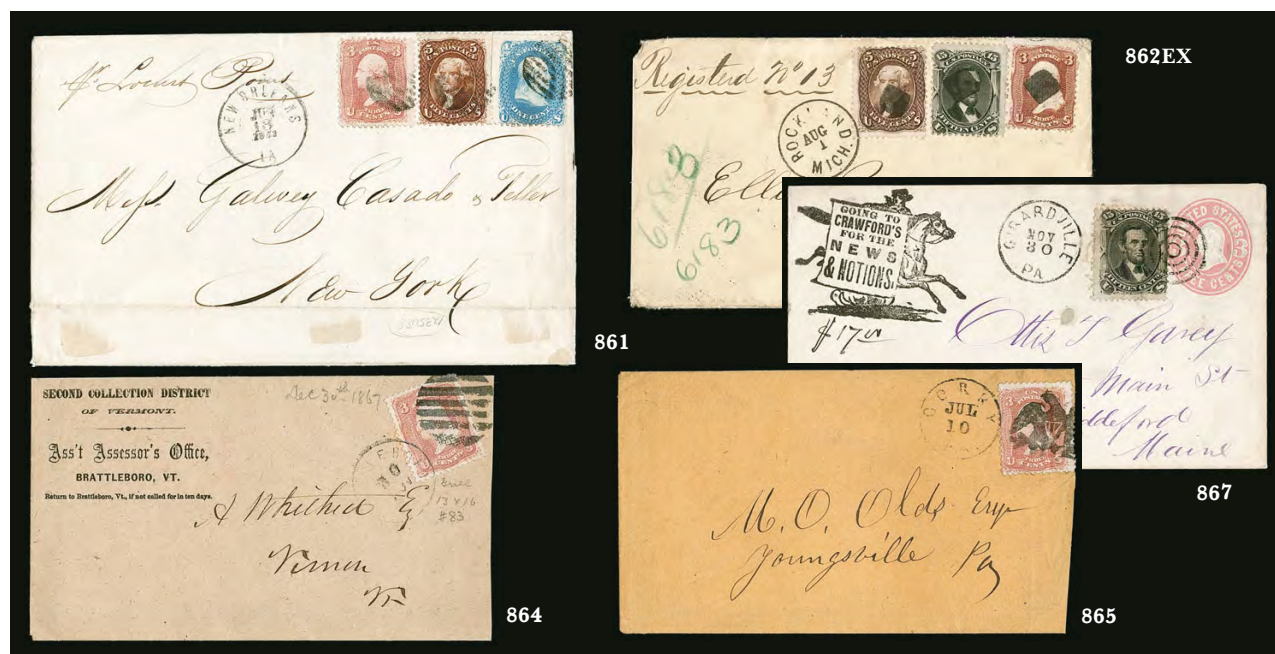 NEW ORLEANS
JUL
18
LA
3 3
U.S. POSTAGE
5 5
FIVE CENTS
U S
Mess. Galwey Casado & Teller
New York
861
862EX
Registered No 13
ROCKLAND
AUG
1
MICH.
6183
6183
GOING TO
CRAWFORD'S
FOR THE
NEWS
& NOTIONS.
$17.00
GIRARDVILLE
NOV
30
PA
UNITED STATES
THREE CENTS
Otis T Garey
Main St
Maine
867
SECOND COLLECTION DISTRICT
OF VERMONT.
Ass't Assessor's Office,
BRATTLEBORO, VT.
Return to Brattleboro, Vt., if not called for in ten days.
Dec 30th 1867
Grill
13 x 16
#83
A Whithed Esq
Vernon
Vt
864
CORRY
JUL
10
M. O. Olds Esqr
Youngsville Pa
865